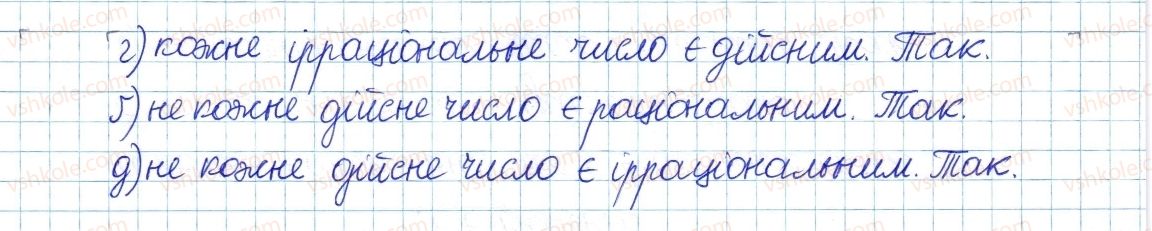 г) кожне ірраціональне число є дійсним. Так.
ґ) не кожне дійсне число є раціональним. Так.
д) не кожне дійсне число є ірраціональним. Так.